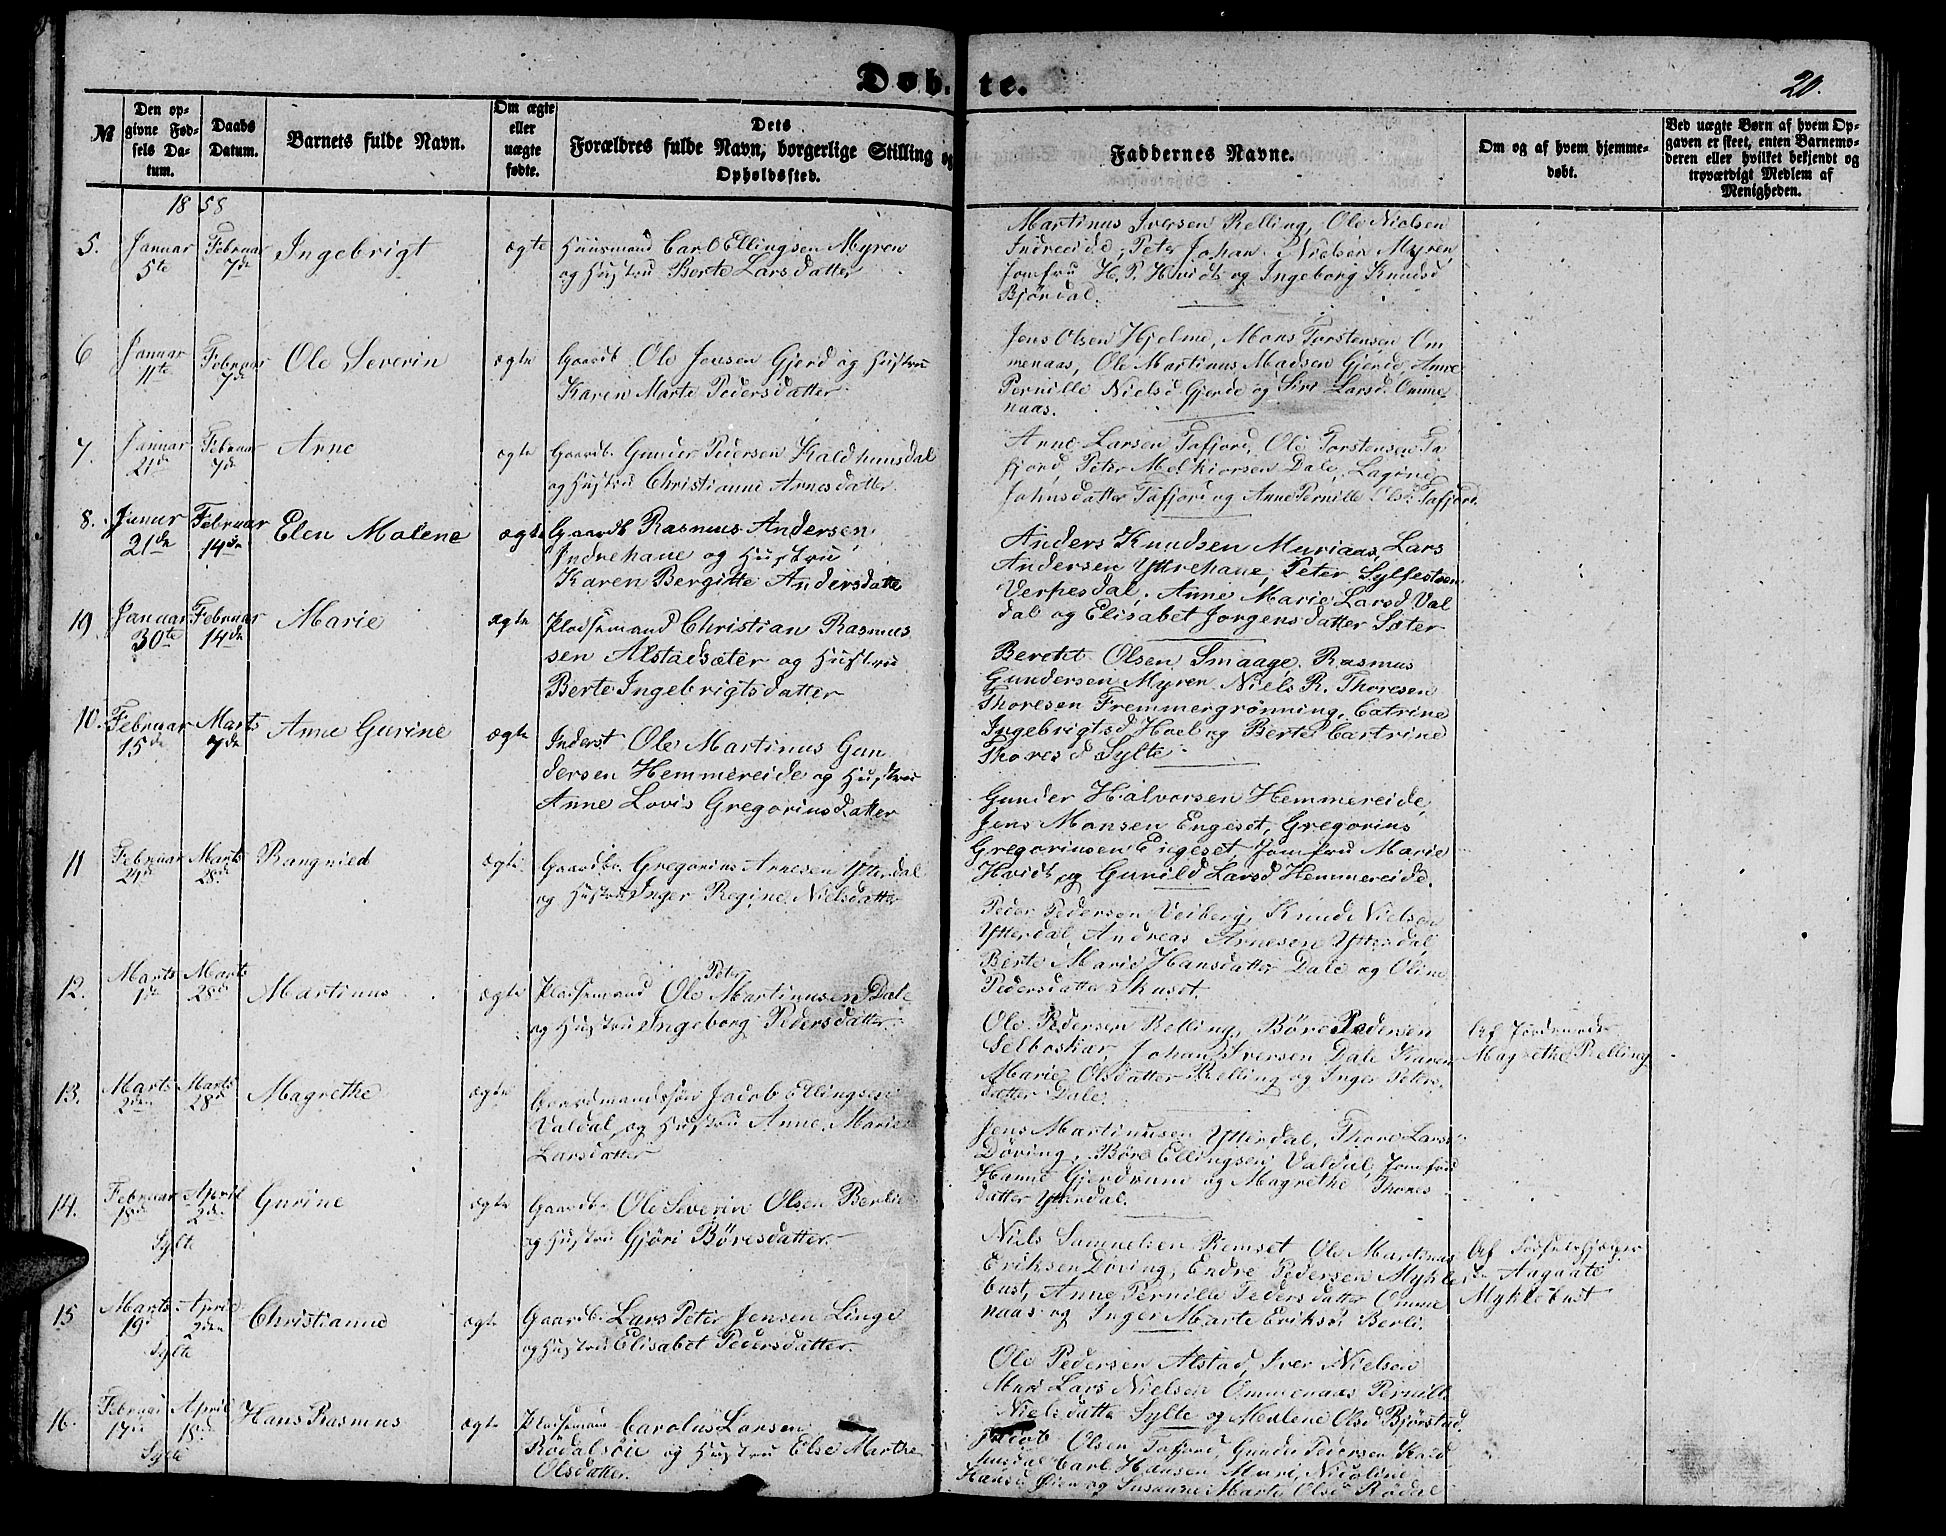 Døb- te.
20.
№
Den op-
givne Fød-
sels Da-
tum.
Daabs
Datum.
Barnets fulde Navn.
Om ægte
eller
uægte
fødte.
Dets
Forældres fulde Navn, borgerlige Stilling og
Opholdssted.
Faddernes Navne.
Om og af hvem hjemme-
døbt.
Ved uægte Børn af hvem Op-
gaven er skeet, enten Barnemo-
deren eller hvilket bekjendt og
troværdigt Medlem af
Menigheden.
1858
5. Januar 5te Februar 7de Ingebrigt ægte
Huusmand Carl Ellingsen Myren
og Hustru Berte Larsdatter
Martinus Iversen Relling, Ole Nielsen
Indreeide, Peter Johan Nielsen Myren,
Jomfru H. P. Hvidt og Ingeborg Knudsd
Bjørdal.
6 Januar 11te Februar 7de Ole Severin ægte
Gaardb. Ole Jensen Gjerd og Hustru
Karen Marte Pedersdatter
Jens Olsen Hjelme, Mons Torstensen Om
menaas, Ole Martinus Madsen Gjerde, Anne
Pernille Nielsd Gjerde og Siri Larsd. Omme
naas.
7. Januar 21de Februar 7de Anne ægte
Gaardb. Gunder Pedersen Kaldhunsdal
og Hustru Christianne Arnesdatter
Arne Larsen Tafjord, Ole Torstensen Ta
fjord, Peter Melkiorsen Dale, Lagine
Johnsdatter Tafjord og Anne Pernille Olsd Tafjord
8. Januar 21de Februar 14de Elen Malene ægte
Gaardb Rasmus Andersen
Indrehane og Hustru
Karen Bergitte Andersdatte
Anders Knudsen Muriaas, Lars
Andersen Yttrehane, Peter Sylfestsen
Verpesdal, Anne Marie Larsd. Val
dal og Elisabet Jørgensdatter Sæter
19. Januar 30te Februar 14de Marie ægte
Pladsemand Christian Rasmus
sen Alstadsæter og Hustru
Berte Ingebrigtsdatter
Berthe Olsen Smaage, Rasmus
Gundersen Myren, Niels R. Thoresen
Thoresen Fremmergrønning, Catrine
Ingebrigtsd Hoel og Berte Cartrine
Thoresd Sylte
10. Februar 15de Marts 7de Anne Gurine ægte
Inderst Ole Martinus Gun
dersen Hemmereide og Hustru
Anne Lovis Gregoriusdatter
Gunder Halvorsen Hemmereide,
Jens Monsen Engeset, Gregorius
Gregoriusen Engeset, Jomfru Marie
Hvidt og Gunild Larsd Hemmereide.
11 Februar 24de Marts 28de Rangnied ægte
Gaardbr. Gregorius Arnesen Ytterdal
og Hustru Inger Regine Nielsdatter
Peder Pedersen Veiberg, Knud Nielsen
Ytterdal, Andreas Arnesen Ytterdal
Berte Marie Hansdatter Dale og Oline
Pedersdatter Skuset.
12. Marts 1ste Marts 28de Martinus ægte
Peter
Pladsemand Ole Martinusen Dale
og Hustru Ingeborg Pedersdatter
Ole Pedersen Relling, Børe Pedersen
Selboskar, Johan Iversen Dale Karen
Marie Olsdatter Relling og Inger Peters
datter Dale.
Af Jordmoder
Magrethe Relling
13. Marts 2den Marts 28de Magrethe ægte
Gaardmandssøn Jacob Ellingsen
Valdal og Hustru Anne Marie
Larsdatter
Jens Martinusen Ytterdal, Thore Lars
Døving, Børe Ellingsen Valdal, Jomfru
Hanne Gjerdrund og Magrethe Thores
datter Ytterdal.
14. Februar 18de April 2den Gurine ægte
Sylte
Gaardb. Ole Severin Olsen Berlie
og Hustru Gjøri Børesdatter.
Niels Samuelsen Remset, Ole Martinus
Eriksen Døving, Endre Pedersen Mykle
bust, Anne Pernille Pedersdatter Omme
naas og Inger Marte Eriksd Berli.
Af Fødselshjælper
sk. Aagaate
Myklebust
15 Marts 19de April 2den Christianne ægte
Sylte
Gaardb. Lars Peter Jensen Linge
og Hustru Elisabet Pedersdatter.
Ole Pedersen Alstad, Iver Nielsen
Muri Lars Nielsen Ommenaas Pernille
Nielsdatter Sylte og Malene Olsd Bjørstad
16. Februar 17de April 18de Hans Rasmus ægte
Sylte
Pladsemand Carolus Larsen
Rødalsøie og Hustru Else Marthe
Olsdatter.
Jakob Olsen Tafjord, Gunder Pedersen Kald
husdal Carl Hansen Muri, Nicoline
Hansd Øien og Susanne Marte Olsd Rødal